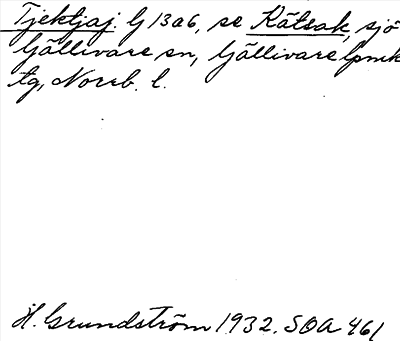 Tjektjaj. G 13 a 6, se Kätsak, sjö
Gällivare sn, Gällivare lpmk
tg, Norrb. l.
H. Grundström 1932. SOA 461